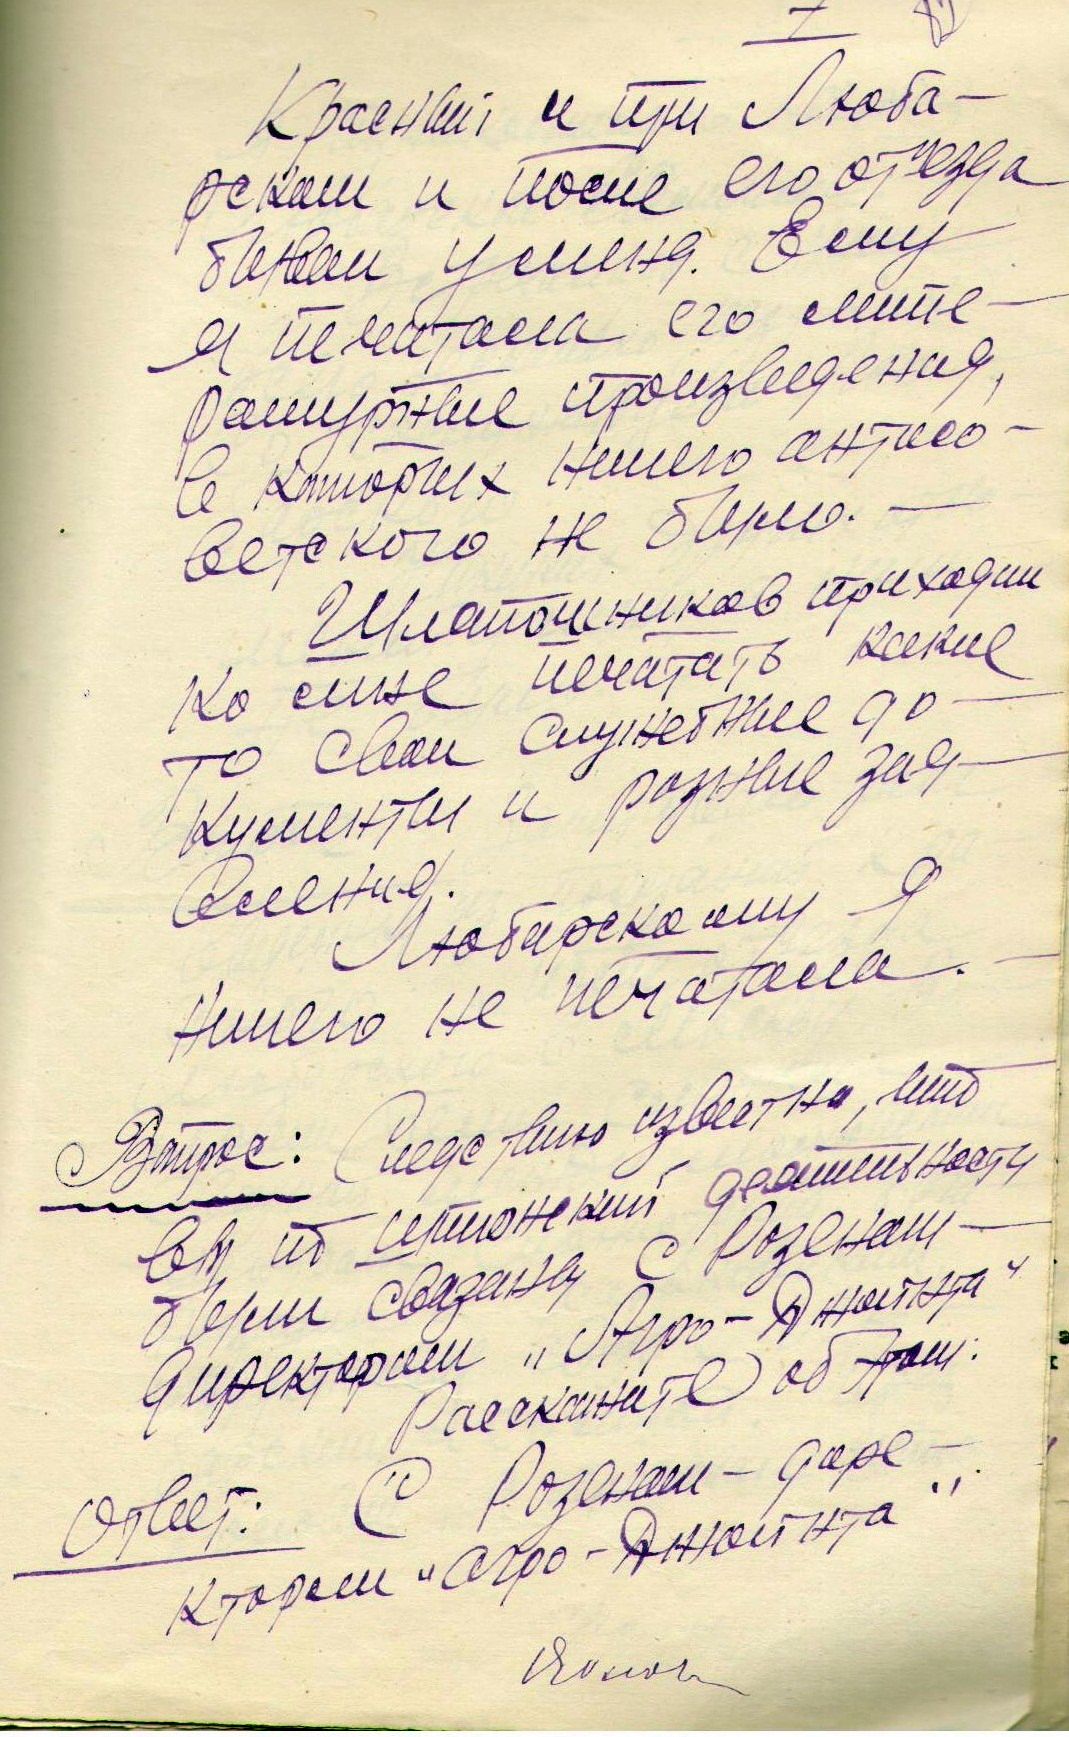 7
Красный и при Люба-
рском и после его от"езда
бывал у меня. Ему
я печатала его лите-
ратурные произведения,
в которых ничего антисо-
ветского не было. —
Шлапочников приходил
ко мне печатать какие
то свои служебные до-
кументы и разные зая-
вления.
Любарскому я
ничего не печатала. —
Вопрос: Следствию известно, что
вы по шпионский деятельности
были связаны с Розеном —
директором „Агро-Джойнта"
Расскажите об этом.
Ответ: С Розеном - дире-
ктором "Агро-Джойнта"